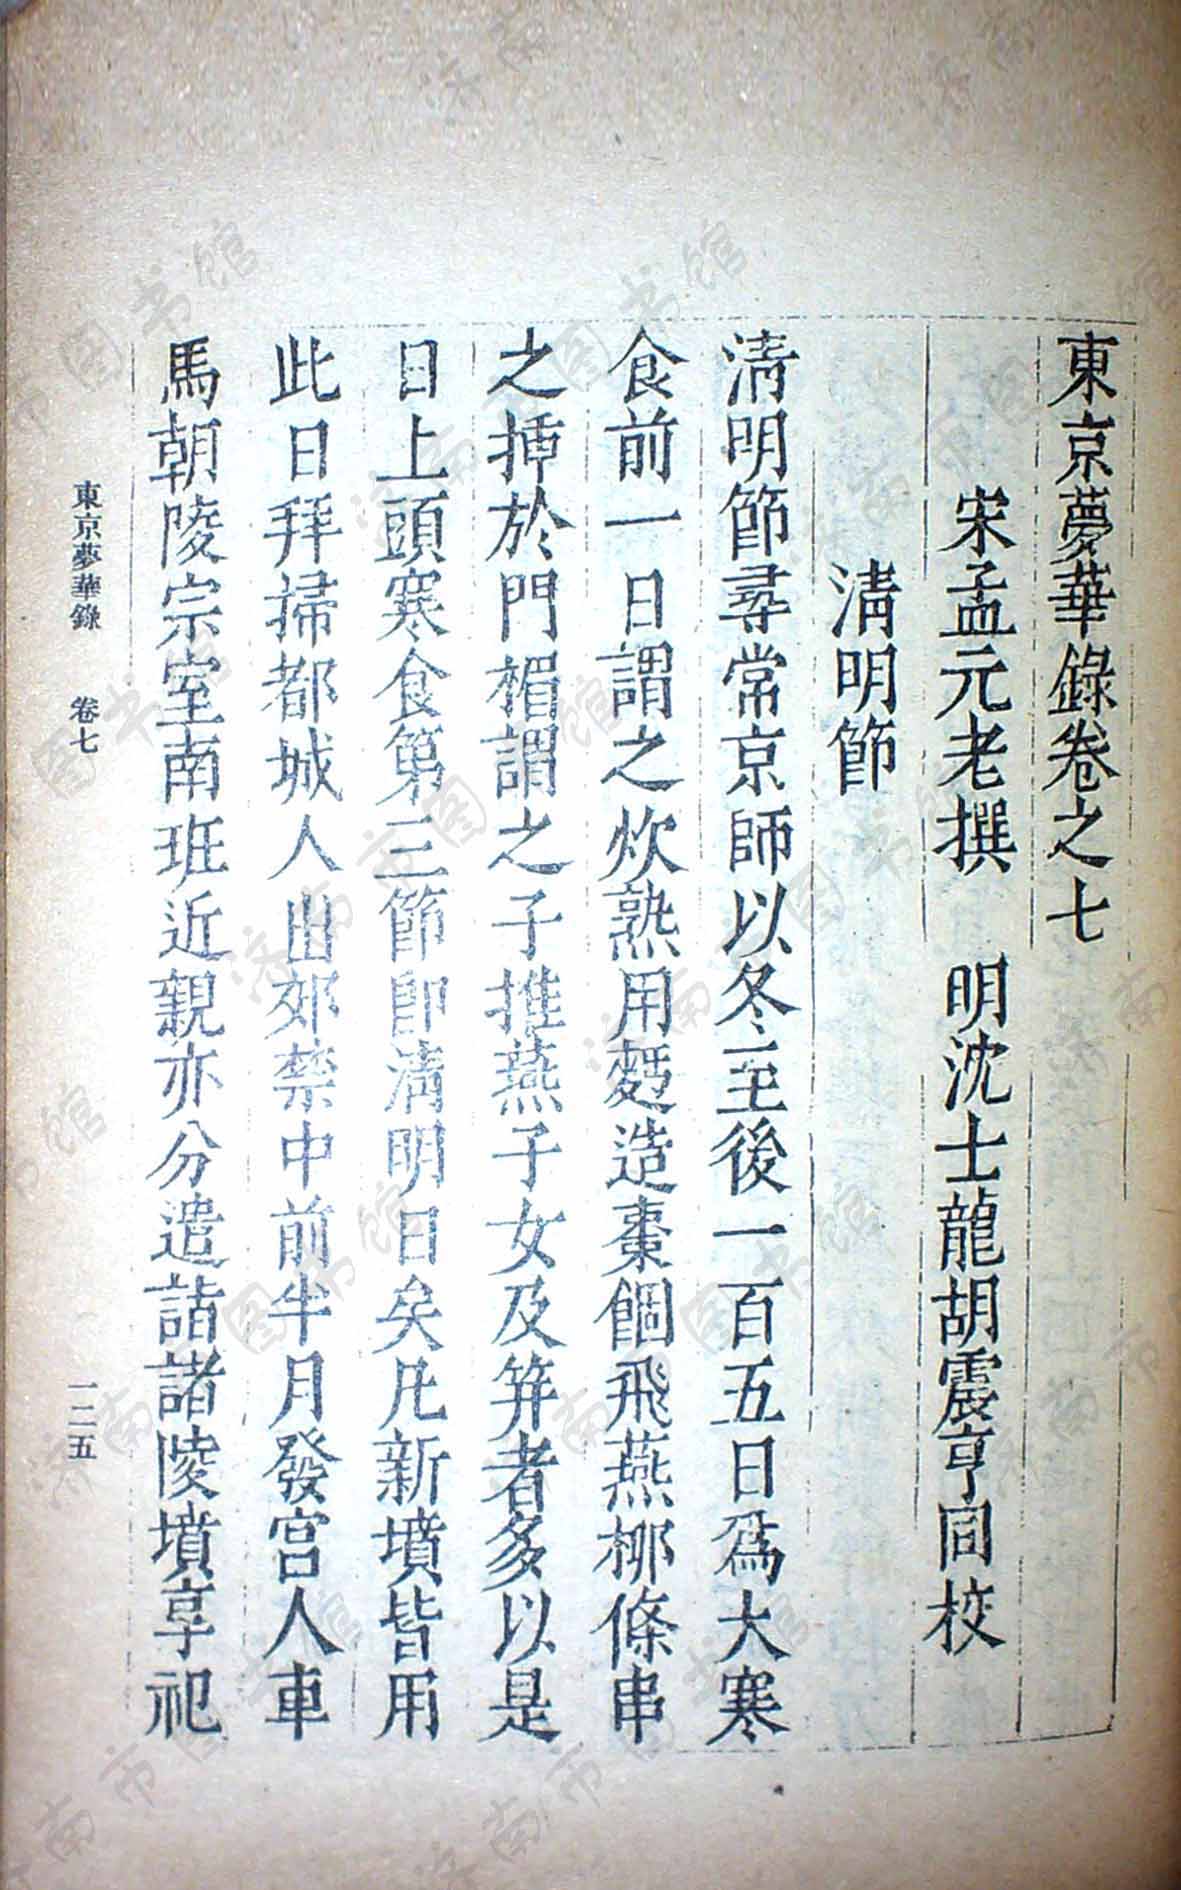 東京夢華錄卷之七
宋孟元老撰 明沈士龍胡震亨同校
清明節
清明節尋常京師以冬至後一百五日爲大寒
食前一日謂之炊熟用麪造棗䭅飛燕柳條串
之揷於門楣謂之子推燕子女及筓者多以是
日上頭寒食第三節卽淸明日矣凡新墳皆用
此日拜掃都城人出郊禁中前半月發宮人車
馬朝陵宗室南班近親亦分遣詣諸陵墳享祀
東京夢華錄 卷七 一二五
济南市图书馆